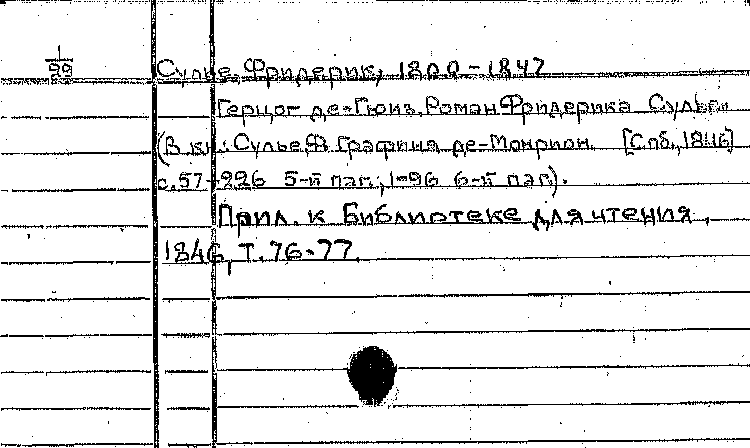 1/99
Сулье, Фридерик, 1800-1847
Герцог де-Гюиз. Роман Фридерика Сулье.
(В кн.: Сулье Ф. Графиня де-Монрион. [Спб., 1846]
с.57-226 5-й паг.; 1-96 6-й паг).
Прил. к Библиотеке для чтения,
1846, т.76-77.